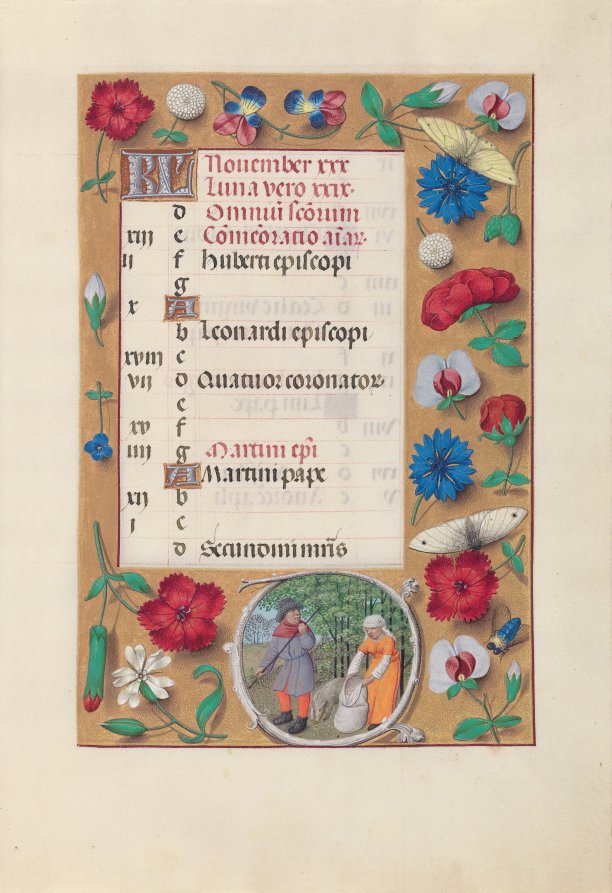 KL Nouember xxx
Luna vero xxix.
d Omniū sc̄orum
xiij e Com̄eoratio aīar.
ij f Huberti episcopi
g
x A
b Leonardi episcopi
xviij c
vij d Quatuor coronator.
e
xv f
iiij g Martini ep̄i
A Martini pape
xij b
i c
d Secundini mr̄is
12